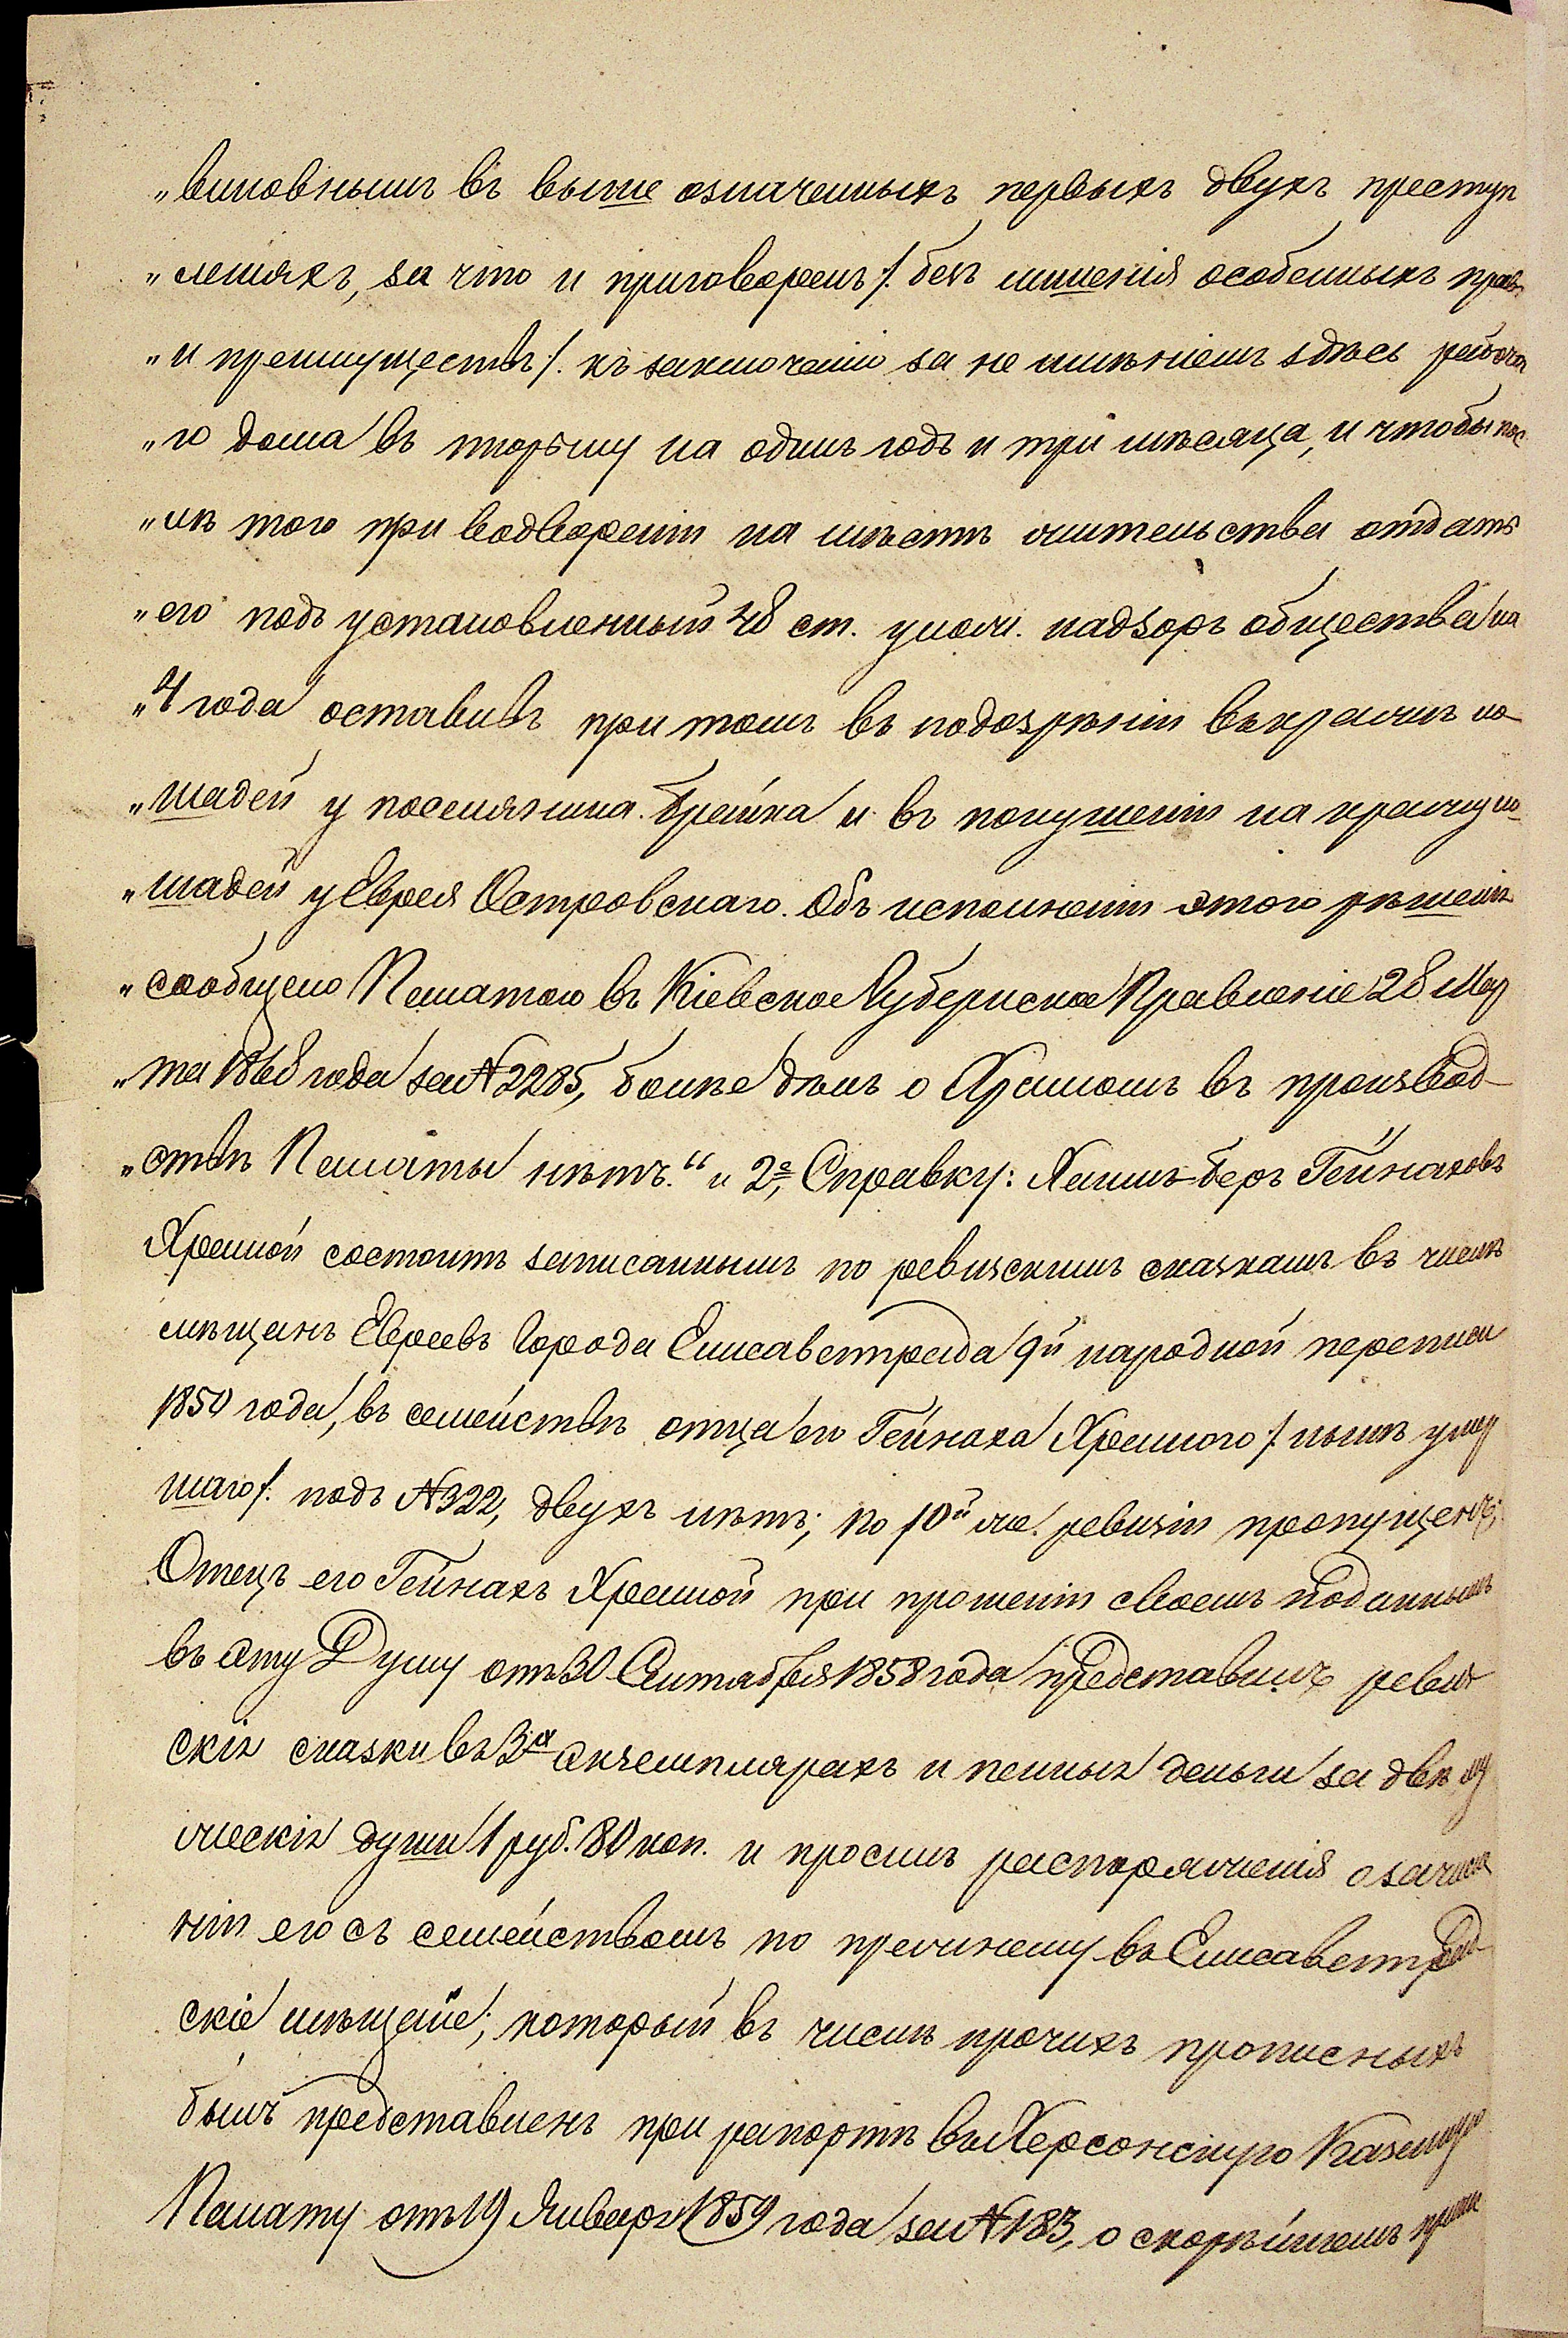 „виновнымъ въ выше означенныхъ первыхъ двухъ преступ
„леніяхъ, за что и приговоренъ /: безъ лишенія особенныхъ правъ
„и преимуществъ /: къ заключенію за не имѣніемъ здѣсь рабоча
„го дома въ тюрьму на одинъ годъ и три мѣсяца, и чтобы пос
„лѣ того при водвореніи на мѣстѣ жительства отдать
„его подъ установленный 48 ст. улож. надзоръ общества на
„4 года оставивъ при томъ въ подозрѣніи въ кражѣ ло-
„шадей у поселянина Брейка и въ покушеніи на кражу ло-
„шадей у Еврея Островскаго. Объ исполненіи этого рѣшенія
„сообщено Палатою въ Кіевское Губернское Правленіе 28 Мар
„та 1868 года за № 2285, болѣе дѣлъ о Храмомъ въ производ-
„ствѣ Палаты нѣтъ.“ и 2е, Справку: Хаимъ-Беръ Гейнаховъ
Храмой состоитъ записаннымъ по ревизскимъ сказкамъ въ числѣ
мѣщанъ Евреевъ Города Елисаветграда 9й народной переписи
1850 года, въ семействѣ отца его Гейнаха Храмого /: нынѣ умер
шаго /: подъ № 322, двухъ лѣтъ; по 10й же ревизіи пропущенъ;
Отецъ его Гейнахъ Храмой при прошеніи своемъ поданнымъ
въ эту Думу отъ 30 Сентября 1858 года представилъ ревиз
скія сказки въ 3х экземплярахъ и пенныя деньги за двѣ му
жескія души 1 руб. 80 коп. и просилъ распоряженія о зачисле
ніи его съ семействомъ по прежнему въ Елисаветград
скіе мѣщане; который въ числѣ прочихъ прописныхъ
былъ представленъ при рапортѣ въ Херсонскую Казенную
Палату отъ 19 Января 1859 года за № 183, о скорѣйшемъ